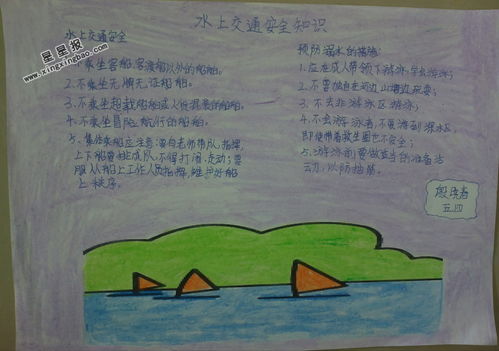 星星报
www.xingxingbao.com
水上交通安全知识
水上交通安全
1.不乘坐客船、客渡船以外的船舶。
2.不乘坐无牌无证船舶。
3.不乘坐超载船舶或人货混装的船舶。
4.不乘坐冒险航行的船舶。
5、集体乘船应注意:须由老师带队、指挥,
上下船要排成队,不得打闹、走动;要
服从船上工作人员指挥,维护好船
上秩序。
预防溺水的措施:
1.应在成人带领下游泳,学会游泳;
2.不要独自在河边、山塘边玩耍;
3.不去非游泳区游泳;
4.不会游泳者,不要游到深水区,
即使带着救生圈也不安全;
5、游泳前要做适当的准备活
动,以防抽筋。
五四